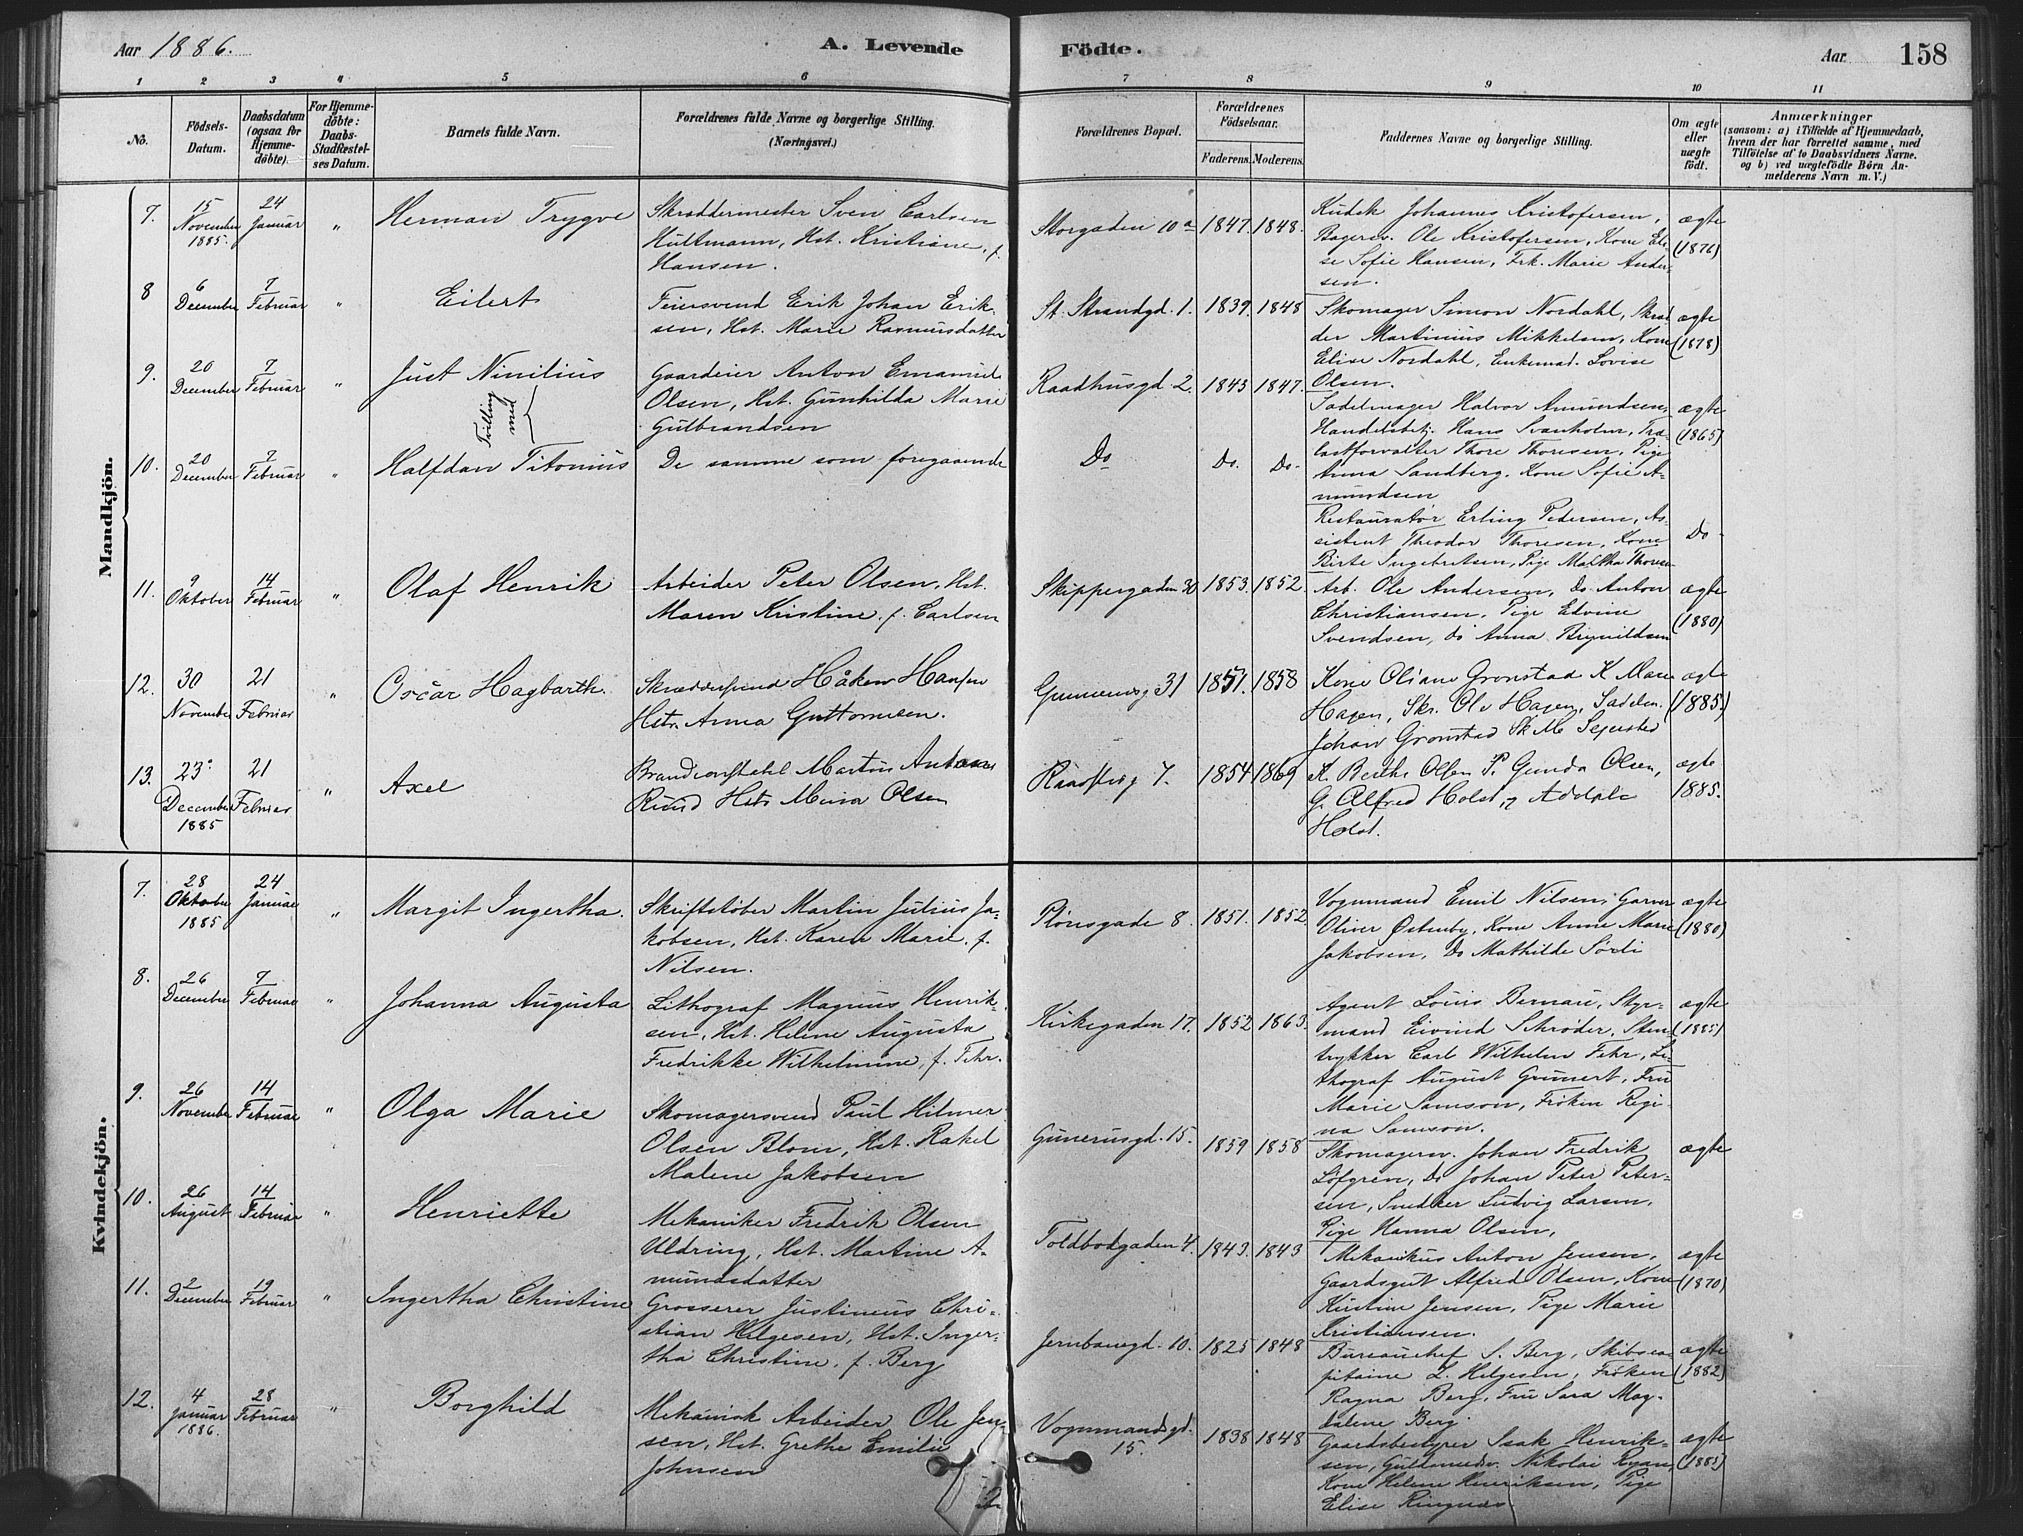 Aar 1886.
A. Levende Födte.
Aar 158
1 2 3 4 5 6 7 8 9 10 11
No.
Födsels-Datum.
Daabsdatum (ogsaa for Hjemmedöbte).
For Hjemmedöbte: Daabs-Stadfæstelses Datum.
Barnets fulde Navn.
Forældrenes fulde Navne og borgerlige Stilling.
(Næringsvei.)
Forældrenes Bopæl.
Forældrenes Födselsaar.
Faderens. Moderens.
Faddernes Navne og borgerlige Stilling.
Om ægte eller uægte födt.
Anmærkninger
(saasom: a) i Tilfælde af Hjemmedaab, hvem der har forrettet samme, med Tilföielse af to Daabsvidners Navne. og b) ved uægtefödte Börn Anmelderens Navn m. V.)
Mandkjön.
7. 15 November 1885. 24 Januar " Herman Trygve
Skræddermester Sven Carlsen
Hultmann, Hst. Kristiane, f.
Hansen.
Storgaden 10a 1847. 1848.
Kudsk Johannes Kristofersen,
Bagersv. Ole Kristofersen, Kone Eli-
se Sofie Hansen, Frk. Marie Ander-
sen.
ægte (1876)
8 6 December 7 Februar " Eilert
Feiersvend Erik Johan Erik-
sen, Hst. Marie Rasmusdatter
St. Strandgd. 1. 1839. 1848
Skomager Simon Nordahl, Skræd
der Martinius Mikkelsen, Kone
Elise Nordahl, Enkemad. Lovise
Olsen.
ægte (1878)
9. 20 December 7 Februar " Just Ninilius
Tvilling med
Gaardeier Anton Emanuel
Olsen, Hst. Gunhilda Marie
Gulbrandsen
Raadhusgd. 2. 1843 1847.
Sadelmager Halvor Amundsen,
Handelsbetj. Hans Svanholm, Træ-
lastforvalter Thore Thoresen, Pige
Anna Sandberg, Kone Sofie A-
mundsen
ægte (1865)
10. 20 December 7 Februar " Halfdan Titonius
De samme som foregaaende
Do Do. Do.
Restauratør Erling Pedersen, As-
sistent Theodor Thoresen, Kone
Birte Ingebretsen, Pige Maltha Thorese
Do
11. 9 Oktober 14 Februar " Olaf Henrik
Arbeider Peter Olsen, Hst.
Maren Kristine, f. Carlsen
Skippergaden 30 1853. 1852.
Arb. Ole Andersen, Do. Anton
Christiansen, Pige Edvine
Svendsen, do Anna Brynildsen
ægte (1880)
12. 30 November 21 Februar " Oscar Hagbarth.
Skræddersvend Håken Hansen
Hstr. Anna Guttormsen.
31 1851. 1858
Kone Oliane Grønstad K. Marie
Hagen, Skr. Ole Hagen, Sadelm.
Johan Grønstad
ægte (1885.)
13. 23 December 1885 21 Februar " Axel
Brandkonstabel Martin
Hstr. Mina Olsen
7. 1854 1869
K. Berthe Olsen P. Gunda Olsen,
G. Alfred Holst, Adolph
Holst.
ægte 1885.
Kvindekjön.
7. 28 Oktober 1885 24 Januar " Margit Ingertha.
Skriftstøber Martin Julius Ja-
kobsen, Hst. Karen Marie, f.
Nilsen.
Pløensgade 8. 1851. 1852.
Vognmand Emil Nilsen, Garver
Oliver Østenby, Kone Anne Marie
Jakobsen, Do Mathilde Sørli
ægte (1880)
8. 26 December 7 Februar " Johanna Augusta
Lithograf Magnus Henrik-
sen, Hst. Helene Augusta
Fredrikke Wilhelmine, f. Fehr.
Kirkegaden 17. 1852 1863.
Agent Louis Bernau, Styr-
mand Eivind Schrøder, Sten-
trykker Carl Wilhelm Fehr, Li-
thograf August Grunert, Fru
Marie Samson, Frøken Regi-
na Samson.
ægte (1885)
9. 26 November 14 Februar " Olga Marie
Skomagersvend Paul Hilmer
Olsen Blom, Hst. Rakel
Malene Jakobsen
Gunerusgd. 15. 1859 1858
Skomagersv. Johan Fredrik
Löfgren, Do Johan Peter Peter-
sen, Snedker Ludvig Larsen,
Pige Hanna Olsen,
ægte
10. 26 August 14 Februar " Henriette
Mekaniker Fredrik Olsen
Uldring, Hst. Martine A-
mundsdatter
Toldbodgaden 4. 1843. 1843
Mekanikus Anton Jensen,
Gaardsgut Alfred Olsen, Kone
Kirstine Jensen, Pige Marie
Kristiansen.
ægte (1870)
11. 2 December 19 Februar " Ingertha Christine
Grosserer Justineus Chri-
stian Helgesen, Hst. Inger-
tha Christine, f. Berg
Jernbanegd. 10. 1825 1848
Bureauchef S. Berg, Skibsca-
pitaine L. Helgesen, Frøken
Ragna Berg, Fru Sara Mag-
dalene Berg.
ægte (1882)
12. 4 Januar 1886. 28 Februar " Borghild
Mekanisk Arbeider Ole Jen-
sen, Hst. Grethe Emilie
Johnsen
Vognmandsgd. 15. 1838 1848
Gaardsbestyrer Isak Henrik-
sen, Guldsmedsv. Nikolai Ryan,
Kone Helene Henriksen, Pige
Elise Ringnæs
ægte (1885)